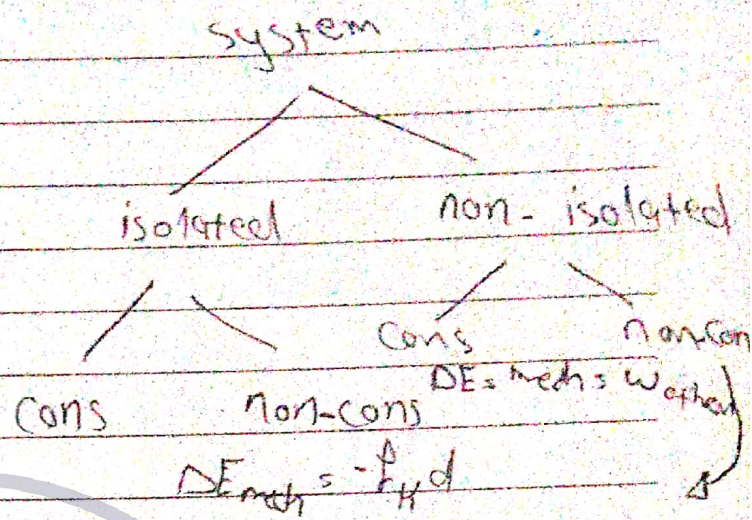 system
isolated non-isolated
cons non-con
DE = mech = Wother
cons non-cons
ΔEmech = -fkd